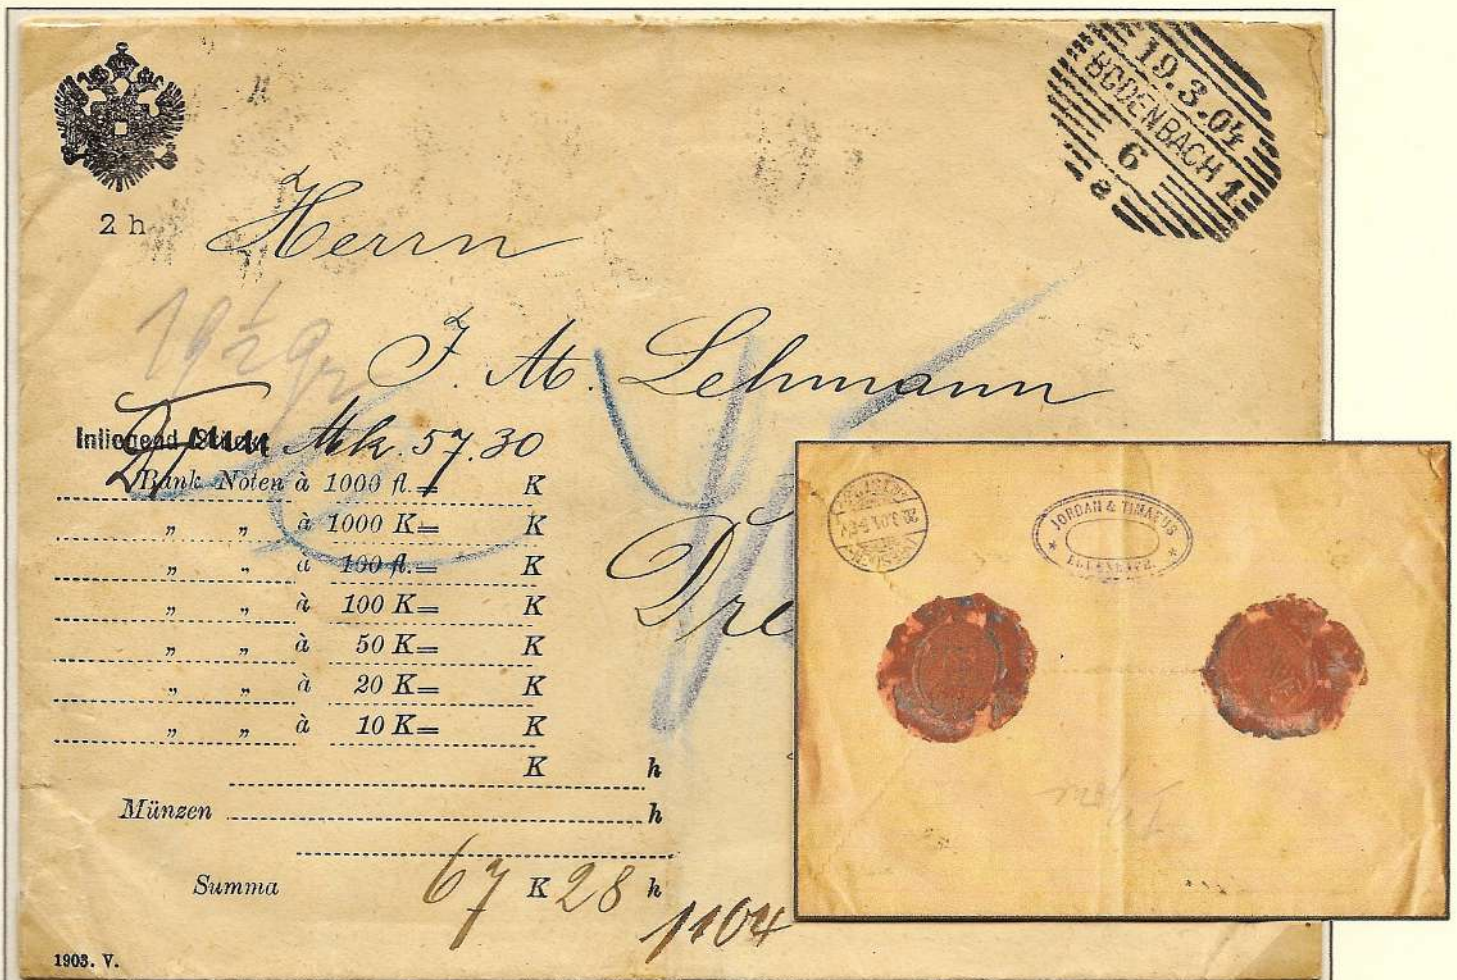 2 h
19.3.04
BODENBACH 1
6
a
Herrn
19½ gr
J. M. Lehmann
Inliegend Mk. 57.30
Bank Noten à 1000 fl.= K
„ „ à 1000 K= K
„ „ à 100 fl.= K
„ „ à 100 K= K
„ „ à 50 K= K
„ „ à 20 K= K
„ „ à 10 K= K
K h
Münzen h
Summa 67 K 28 h
1104
1903. V.
Dre
JORDAN & TIMAEUS